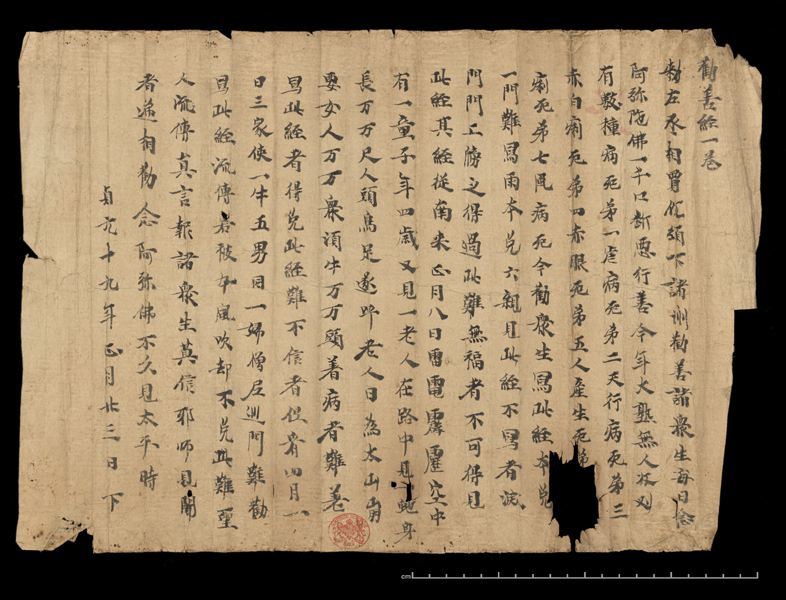 勸善經一卷
勑左丞相賈躭頒下諸州勸善諸衆生每日念
阿弥陁佛一千口斷惡行善今年大熟無人收刈
有數種病死第一虐病死第二天行病死第三
赤白痢死第四赤眼死第五人産生死第
痢死第七風病死今勸衆生寫此經一本免
一門難寫兩本免六親見此經不寫者滅
門門上牓之得過此難無福者不可得見
此經其經從南來正月八日雷電霹靂空中
有一童子年四歲又見一老人在路中見一蛇身
長万万尺人頭鳥足遂呼老人曰為太山崩
要女人万万衆須牛万万頭着病者難差
寫此經者得免此經難不信者但看四月一
日三家使一牛五男同一婦僧尼巡門難勸
寫此經流傳若被如風吹却不免此難聖
人流傳真言報諸衆生莫信邪師見聞
者遞相勸念阿弥佛不久見太平時
貞元十九年正月廿三日下
cm